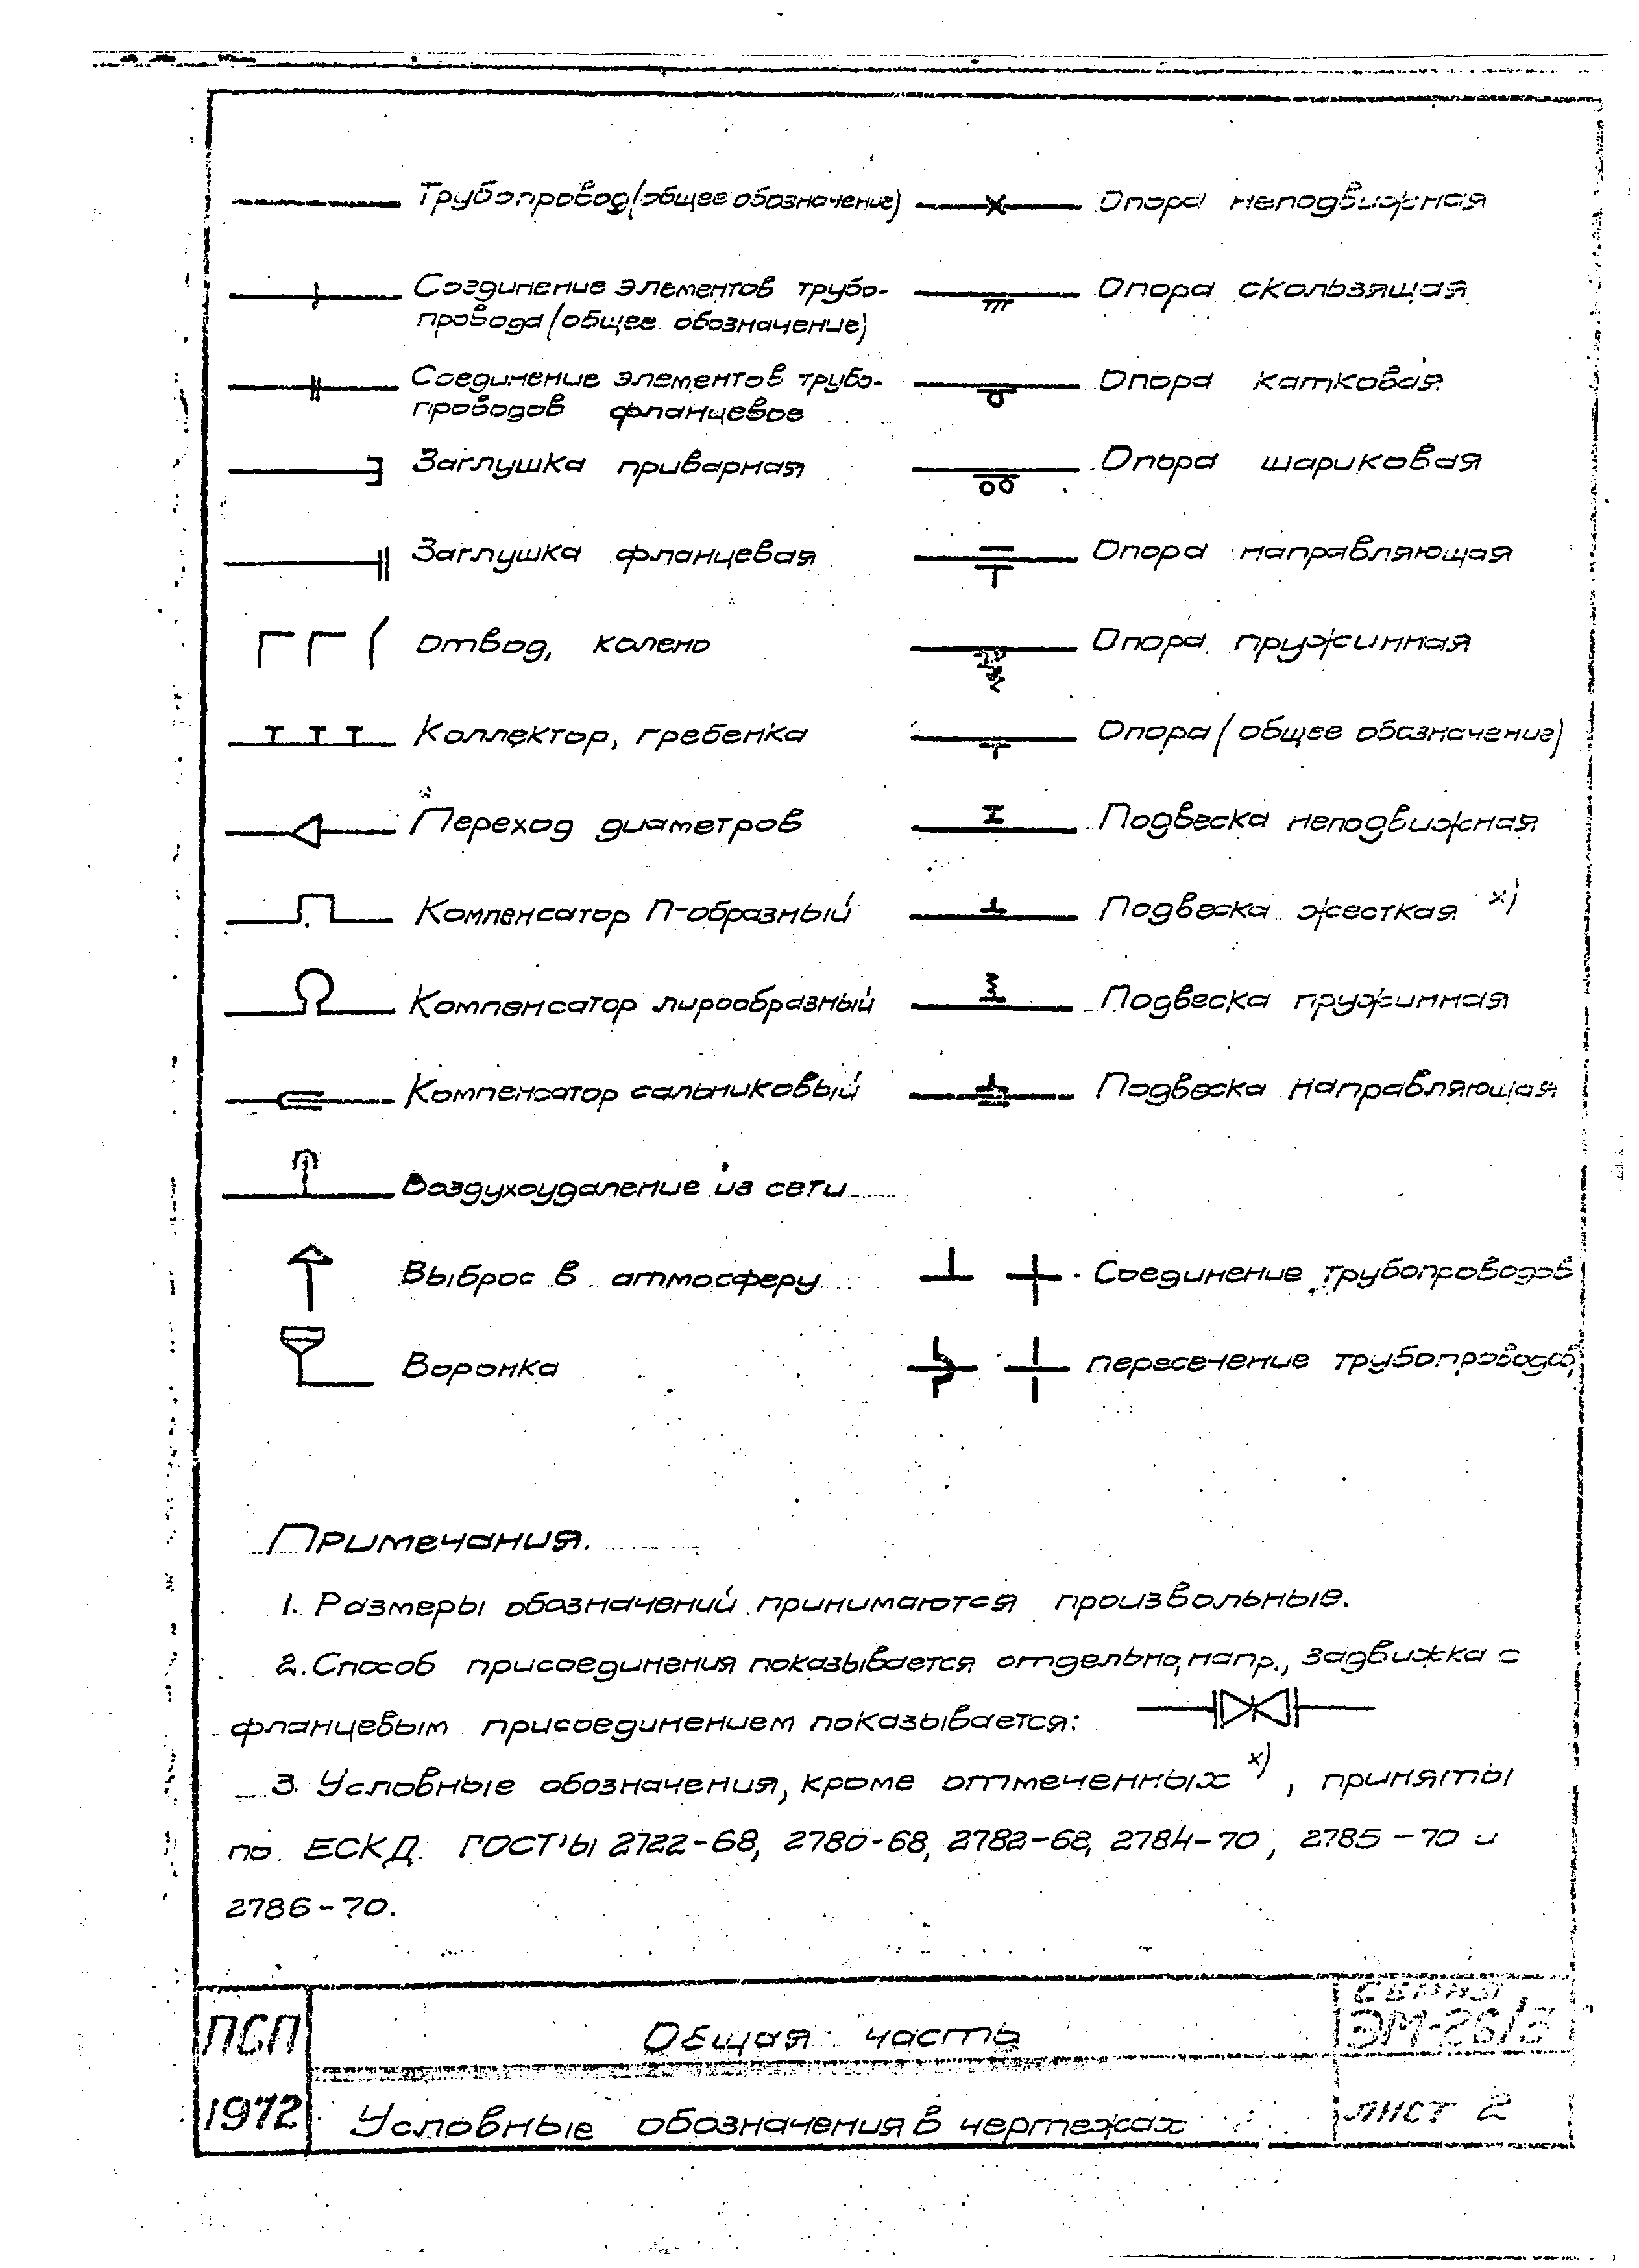 Трубопровод (общее обозначение)
Соединение элементов трубо-
провода (общее обозначение)
Соединение элементов трубо-
проводов фланцевое
Заглушка приварная
Заглушка фланцевая
Отвод, колено
Коллектор, гребенка
Переход диаметров
Компенсатор П-образный
Компенсатор лирообразный
Компенсатор сальниковый
Воздухоудаление из сети
Выброс в атмосферу
Воронка
Опора неподвижная
Опора скользящая
Опора катковая
Опора шариковая
Опора направляющая
Опора пружинная
Опора (общее обозначение)
Подвеска неподвижная
Подвеска жесткая х)
Подвеска пружинная
Подвеска направляющая
Соединение трубопроводов
пересечение трубопроводов
Примечания.
1. Размеры обозначений принимаются произвольные.
2. Способ присоединения показывается отдельно, напр., задвижка с
фланцевым присоединением показывается:
3. Условные обозначения, кроме отмеченных х), приняты
по ЕСКД ГОСТ'ы 2722-68, 2780-68, 2782-68, 2784-70, 2785-70 и
2786-70.
1972
Общая часть
Условные обозначения в чертежах
Серия
лист 2